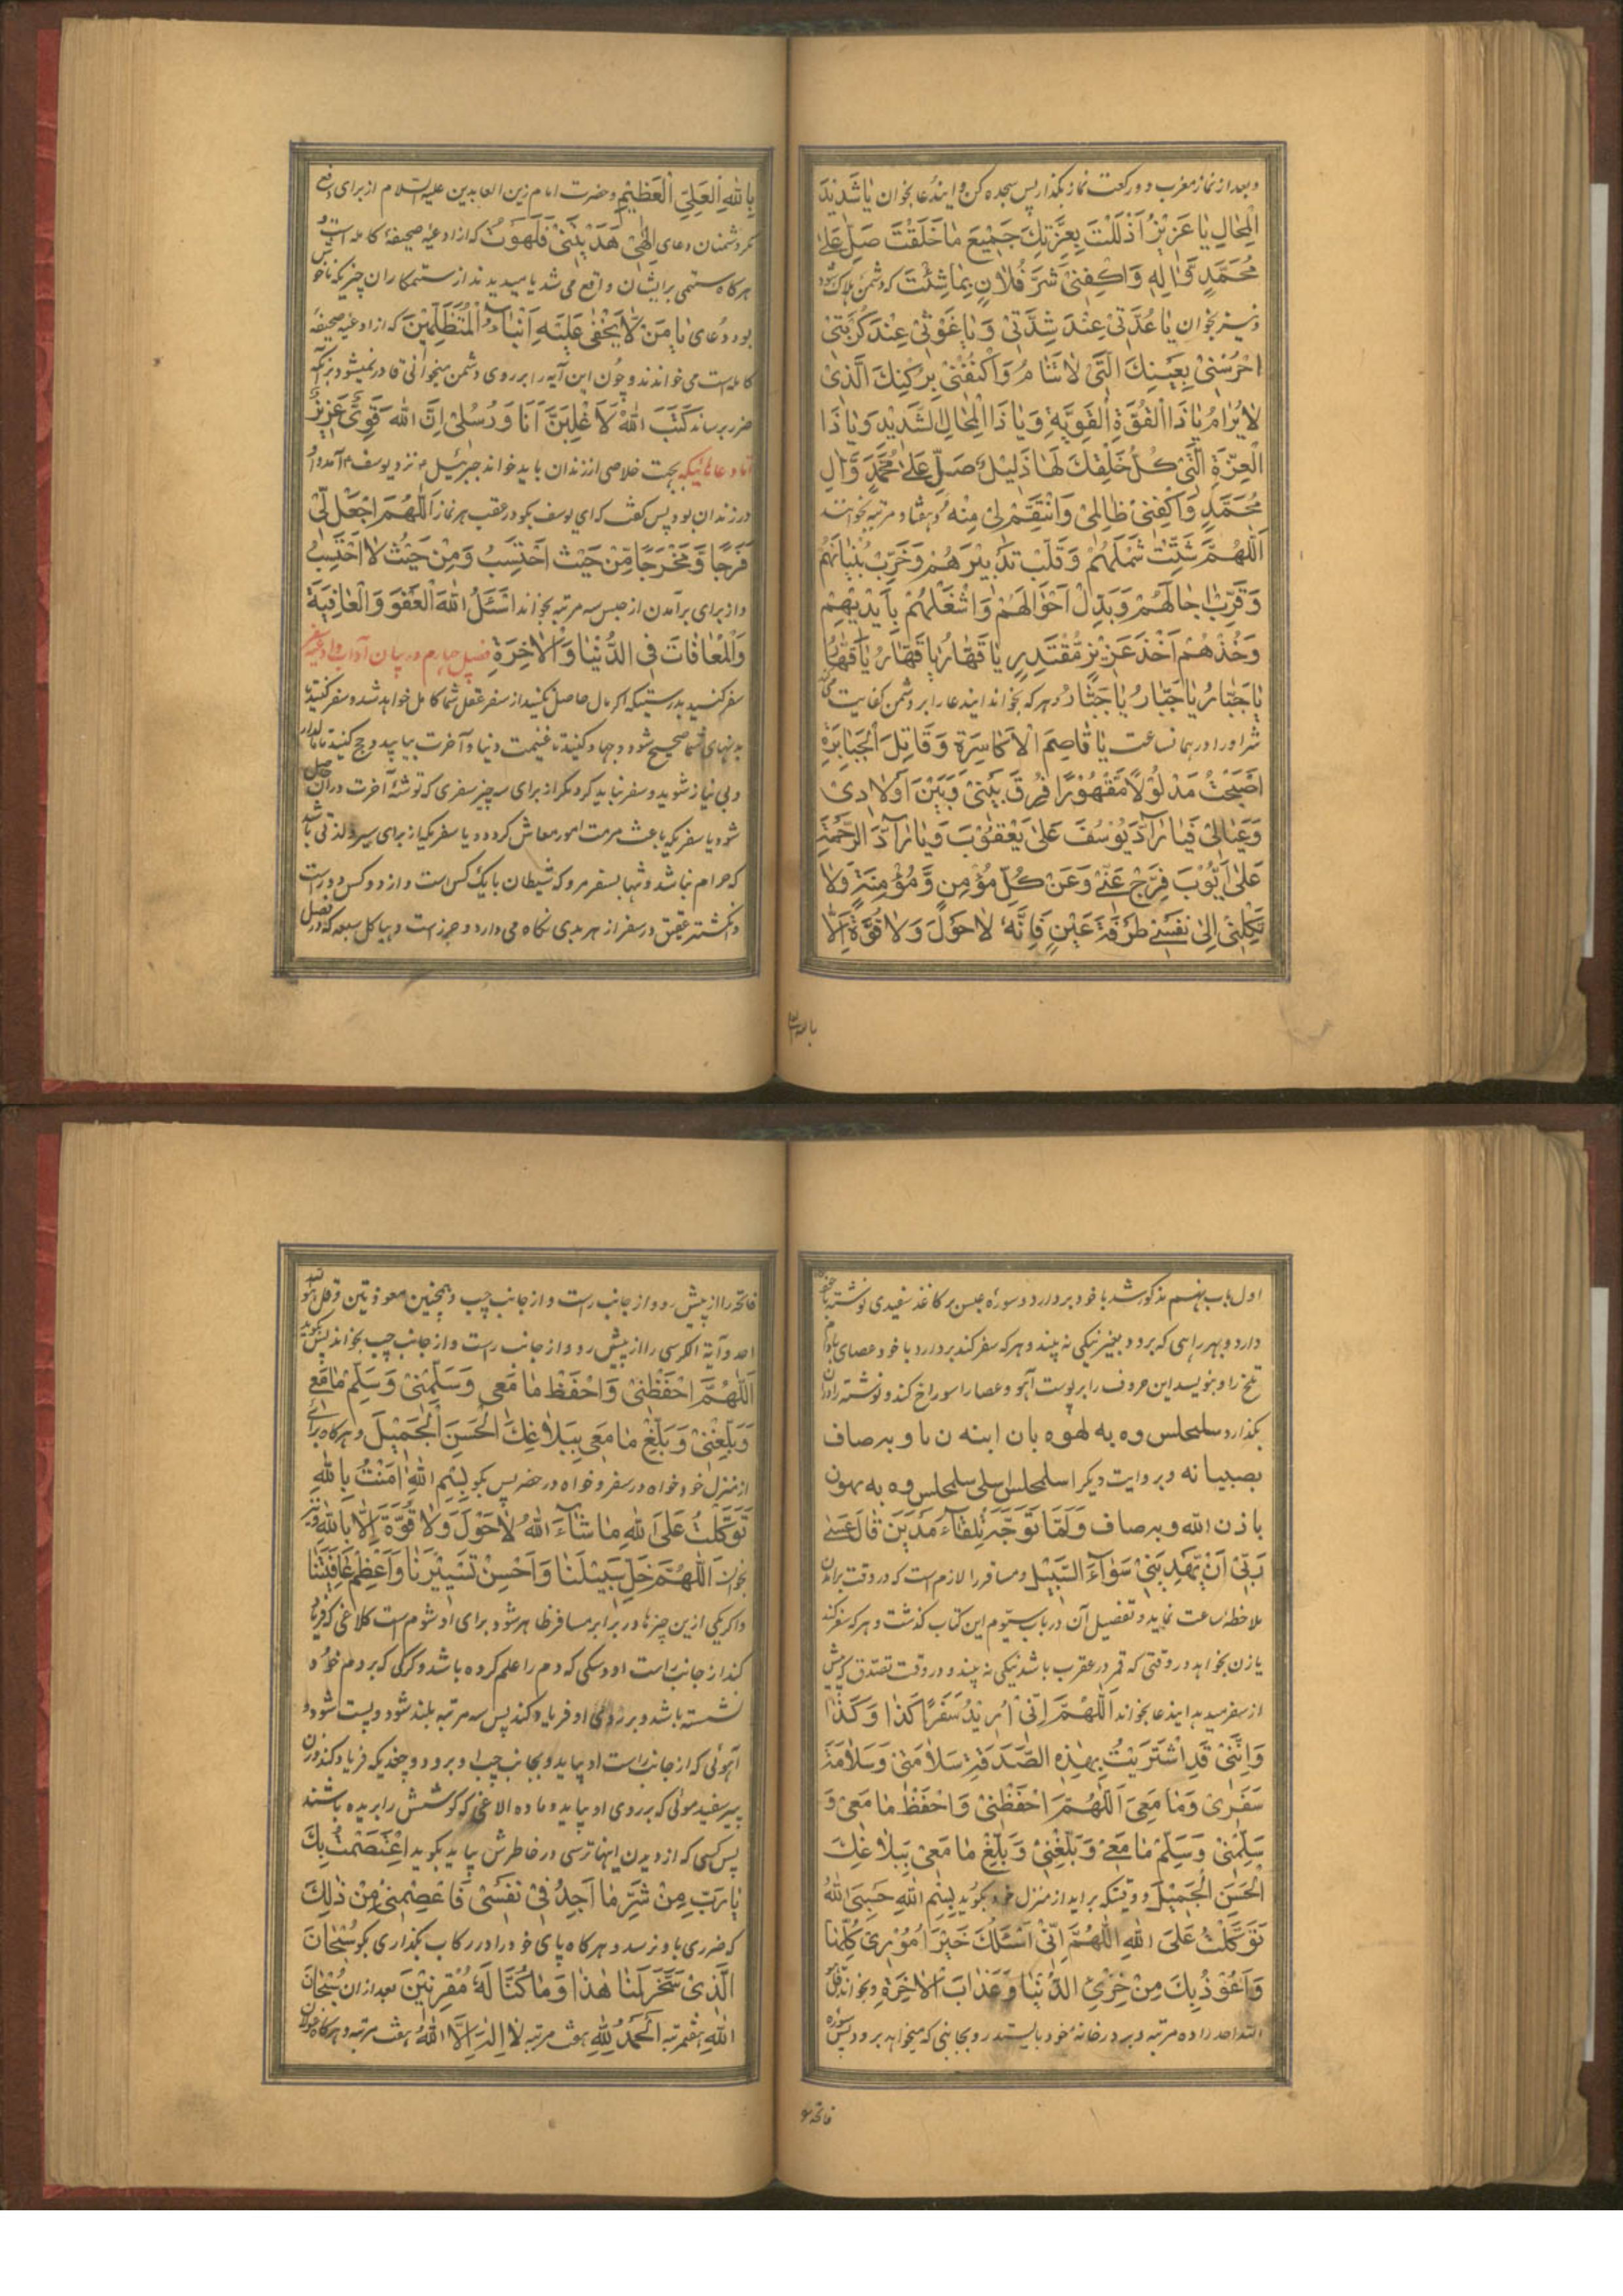 وبعد از نماز مغرب دو رکعت نماز بکذار پس سجده کن و ایندعا بخوان یٰا شَدٖیدَ
الْمِحٰالِ یٰا عَزٖیْزُ اَذْلَلْتَ بِعِزَّتِكَ جَمٖیْعَ مٰا خَلَقْتَ صَلِّ عَلیٰ
مُحَمَّدٍ وَّ اٰلِهٖ وَاکْفِنٖیْ شَرَّ فُلٰانٍ بِمٰا شِئْتَ که دشمن هلاک شود
ونیز بخوان یٰا عُدَّتٖیْ عِنْدَ شِدَّتٖیْ وَیٰا غَوْثٖیْ عِنْدَ کُرْبَتٖیْ
اُحْرُسْنٖیْ بِعَیْنِكَ الَّتٖیْ لٰا تَنٰامُ وَاکْنُفْنٖیْ بِرُکْنِكَ الَّذٖیْ
لٰا یُرٰامُ یٰا ذَا الْقُوَّةِ الْقَوِیَّةِ وَیٰا ذَا الْمِحٰالِ الشَّدٖیْدِ وَیٰا ذَا
الْعِزَّةِ الَّتٖیْ کُلُّ خَلْقِكَ لَهٰا ذَلٖیْلٌ صَلِّ عَلیٰ مُحَمَّدٍ وَّ اٰلِ
مُحَمَّدٍ وَاکْفِنٖیْ ظٰالِمٖیْ وَانْتَقِمْ لٖیْ مِنْهُ و هفتاد مرتبه بخوانند
اَللّٰهُمَّ شَتِّتْ شَمْلَهُمْ وَقَلِّبْ تَدْبٖیْرَهُمْ وَخَرِّبْ بُنْیٰانَهُمْ
وَقَرِّبْ اٰجٰالَهُمْ وَبَدِّلْ اَحْوٰالَهُمْ وَاشْغَلْهُمْ بِاَیْدٖیْهِمْ
وَخُذْهُمْ اَخْذَ عَزٖیْزٍ مُّقْتَدِرٍ یٰا قَهّٰارُ یٰا قَهّٰارُ یٰا قَهّٰارُ
یٰا جَبّٰارُ یٰا جَبّٰارُ یٰا جَبّٰارُ و هر که بخواند ایندعا را بر دشمن کفایت می‌کند
شر او را در همانساعت یٰا قٰاصِمَ الْاَکٰاسِرَةِ وَقٰاتِلَ الْجَبٰابِرَةِ
اَصْبَحْتُ مَذْلُوْلًا مَّقْهُوْرًا فُرِّقَ بَیْنٖیْ وَبَیْنَ اَوْلٰادٖیْ
وَعَیٰالٖیْ فَیٰا رٰآدَّ یُوْسُفَ عَلیٰ یَعْقُوْبَ وَیٰا رٰآدَّ الرَّحْمَةِ
عَلیٰ اَیُّوْبَ فَرِّجْ عَنّٖیْ وَعَنْ کُلِّ مُؤْمِنٍ وَّمُؤْمِنَةٍ وَلٰا
تَکِلْنٖیْ اِلیٰ نَفْسٖیْ طَرْفَةَ عَیْنٍ فَاِنَّهٗ لٰا حَوْلَ وَلٰا قُوَّةَ اِلَّا
بالله
بِاللّٰهِ الْعَلِیِّ الْعَظٖیْمِ و حضرت امام زین العابدین علیه السلام از برای دفع
مکر دشمنان دعای اِلٰهٖیْ هَدَیْتَنٖیْ فَلَهَوْتُ که از ادعیهٔ صحیفهٔ کامله است
هرکاه ستمی بر ایشان واقع می شد یا میدیدند از ستمکاران چیزیکه ناخوش
بود دعای یٰا مَنْ لّٰا یَخْفیٰ عَلَیْهِ اَنْبٰآءُ الْمُتَظَلِّمٖیْنَ که از ادعیهٔ صحیفهٔ
کامله است می خواندند و چون این آیه را بر روی دشمن میخوانی قادر نمیشود بر آنکه
ضرر برساند کَتَبَ اللّٰهُ لَاَغْلِبَنَّ اَنَا وَرُسُلٖیْ اِنَّ اللّٰهَ قَوِیٌّ عَزٖیْزٌ
اما دعاهائیکه بجهت خلاصی از زندان باید خواند جبرئیل ع نزد یوسف ع آمد و او
در زندان بود پس کفت که ای یوسف بکو در عقب هر نماز اَللّٰهُمَّ اجْعَلْ لّٖیْ
فَرَجًا وَّمَخْرَجًا مِّنْ حَیْثُ اَحْتَسِبُ وَمِنْ حَیْثُ لٰا اَحْتَسِبُ
و از برای برآمدن از حبس سه مرتبه بخواند اَسْئَلُ اللّٰهَ الْعَفْوَ وَالْعٰافِیَةَ
وَالْمُعٰافٰاتَ فِی الدُّنْیٰا وَالْاٰخِرَةِ فصل چهارم در بیان آداب و ادعیه سفر
سفر کنید بدرستیکه اکر مال حاصل نکنید از سفر عقل شما کامل خواهد شد و سفر کنید تا
بدنهای شما صحیح شود و جهاد کنید تا غنیمت دنیا و آخرت بیابید و حج کنید تا مالدار
و بی نیاز شوید و سفر نباید کرد مکر از برای سه چیز سفری که توشهٔ آخرت در آن حاصل
شود یا سفریکه باعث مرمت امور معاش کردد و یا سفریکه از برای سیر و لذتی باشد
که حرام نباشد و تنها بسفر مرو که شیطان با یک کس است و از دو کس دور است
و انکشتر عقیق در سفر از هر بدی نکاه می دارد و حرز است و هیاکل سبعه که در فصل
اول باب نهم مذکور شد با خود بردارد و سورهٔ عبس بر کاغذ سفیدی نوشته با خود
دارد و بهر راهی که برود بغیر نیکی نه بیند و هر که سفر کند بردارد با خود عصای بادام
تلخ را و بنویسد این حروف را بر پوست آهو و عصا را سوراخ کند و نوشته را در آن
بکذارد سلمحلس وه به لهوه بان ابنه ن با و به صاف
بصبیا نه و بروایت دیکر اسلمحلس سلمحلس وه به یهون
باذن الله و به صاف وَلَمّٰا تَوَجَّهَ تِلْقٰآءَ مَدْیَنَ قٰالَ عَسیٰ
رَبّٖیْ اَنْ یَّهْدِیَنٖیْ سَوٰآءَ السَّبٖیْلِ و مسافر را لازم است که در وقت برآمدن
ملاحظهٔ ساعت نماید و تفصیل آن در باب سیّوم این کتاب کذشت و هر که سفر کند
یا زن بخواهد در وقتی که قمر در عقرب باشد نیکی نه بیند و در وقت تصدق که پیش
از سفر میدهد ایندعا بخواند اَللّٰهُمَّ اِنّٖیْ اُرٖیْدُ سَفَرًا کَذٰا وَ کَذٰا
وَاِنَّنٖیْ قَدِ اشْتَرَیْتُ بِهٰذِهِ الصَّدَقَةِ سَلٰامَتٖیْ وَسَلٰامَةَ
سَفَرٖیْ وَمٰا مَعِیَ اَللّٰهُمَّ احْفَظْنٖیْ وَاحْفَظْ مٰا مَعٖیْ وَ
سَلِّمْنٖیْ وَسَلِّمْ مٰا مَعٖیْ وَبَلِّغْنٖیْ وَبَلِّغْ مٰا مَعٖیْ بِبَلٰاغِكَ
الْحَسَنِ الْجَمٖیْلِ و وقتیکه براید از منزل خود بکوید بِسْمِ اللّٰهِ حَسْبِیَ اللّٰهُ
تَوَکَّلْتُ عَلَی اللّٰهِ اَللّٰهُمَّ اِنّٖیْ اَسْئَلُكَ خَیْرَ اُمُوْرٖیْ کُلِّهٰا
وَاَعُوْذُ بِكَ مِنْ خِزْیِ الدُّنْیٰا وَعَذٰابِ الْاٰخِرَةِ و بخواند قل هو
الله احد را ده مرتبه و بر در خانهٔ خود بایستد رو بجانبی که میخواهد برود پس سوره
فاتحه
فاتحه را از پیش رو و از جانب راست و از جانب چپ و همچنین معوذتین و قل هو الله
احد و آیة الکرسی را از پیش رو و از جانب راست و از جانب چپ بخواند پس بکوید
اَللّٰهُمَّ احْفَظْنٖیْ وَاحْفَظْ مٰا مَعٖیْ وَسَلِّمْنٖیْ وَسَلِّمْ مٰا مَعٖیْ
وَبَلِّغْنٖیْ وَبَلِّغْ مٰا مَعٖیْ بِبَلٰاغِكَ الْحَسَنِ الْجَمٖیْلِ و هرکاه برآئی
از منزل خود خواه در سفر و خواه در حضر پس بکو بِسْمِ اللّٰهِ اٰمَنْتُ بِاللّٰهِ
تَوَکَّلْتُ عَلَی اللّٰهِ مٰا شٰآءَ اللّٰهُ لٰا حَوْلَ وَلٰا قُوَّةَ اِلَّا بِاللّٰهِ و نیز
بخوان اَللّٰهُمَّ خَلِّ سَبٖیْلَنٰا وَاَحْسِنْ تَسْیٖیْرَنٰا وَاَعْظِمْ عٰافِیَتَنٰا
و اکر یکی ازین چیزها در برابر مسافر ظاهر شود برای او شوم است کلاغی که فریاد
کند از جانب راست او و سکی که دم را علم کرده باشد و کرکی که بر دم خود
نشسته باشد و بر روی او فریاد کند پس سه مرتبه بلند شود و پست شود و
آهوئی که از جانب راست او بیاید و بجانب چپ او برود و جغدیکه فریاد کند و زن
پیر سفید موئی که بر روی او بیاید و ماده الاغی که کوشش را بریده باشند
پس کسی که از دیدن اینها ترسی در خاطرش بیاید بکوید اِعْتَصَمْتُ بِكَ
یٰا رَبِّ مِنْ شَرِّ مٰا اَجِدُ فٖیْ نَفْسٖیْ فَاعْصِمْنٖیْ مِنْ ذٰلِكَ
که ضرری باو نرسد و هر کاه پای خود را در رکاب بکذاری بکو سُبْحٰانَ
الَّذٖیْ سَخَّرَ لَنٰا هٰذٰا وَمٰا کُنّٰا لَهٗ مُقْرِنٖیْنَ بعد از ان سُبْحٰانَ
اللّٰهِ هفتمرتبه اَلْحَمْدُ لِلّٰهِ هفت مرتبه لٰا اِلٰهَ اِلَّا اللّٰهُ هفت مرتبه و هرکاه